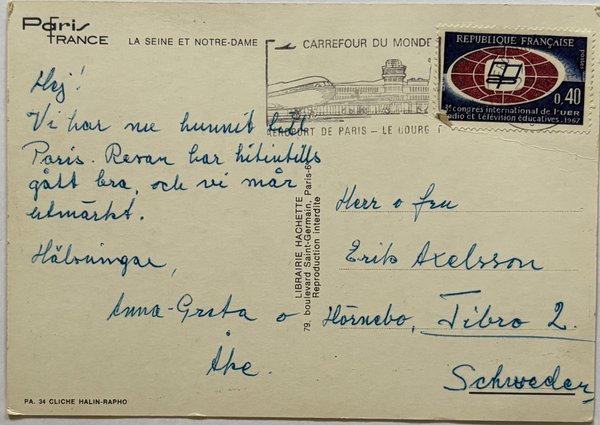 Paris
FRANCE
LA SEINE ET NOTRE-DAME
CARREFOUR DU MONDE
AEROPORT DE PARIS - LE BOURGET
REPUBLIQUE FRANÇAISE
postes
0,40
3e congrès international de l'UER
radio et télévision éducatives. 1967
Hej!
Vi har nu hunnit till
Paris. Resan har hitintills
gått bra, och vi mår
utmärkt.
Hälsningar,
Anna-Greta o
Åke.
LIBRAIRIE HACHETTE
79, boulevard Saint-Germain, Paris-6e
Reproduction interdite
Herr o fru
Erik Axelsson
Hörnebo, Tibro 2.
Schweden
PA. 34 CLICHE HALIN-RAPHO